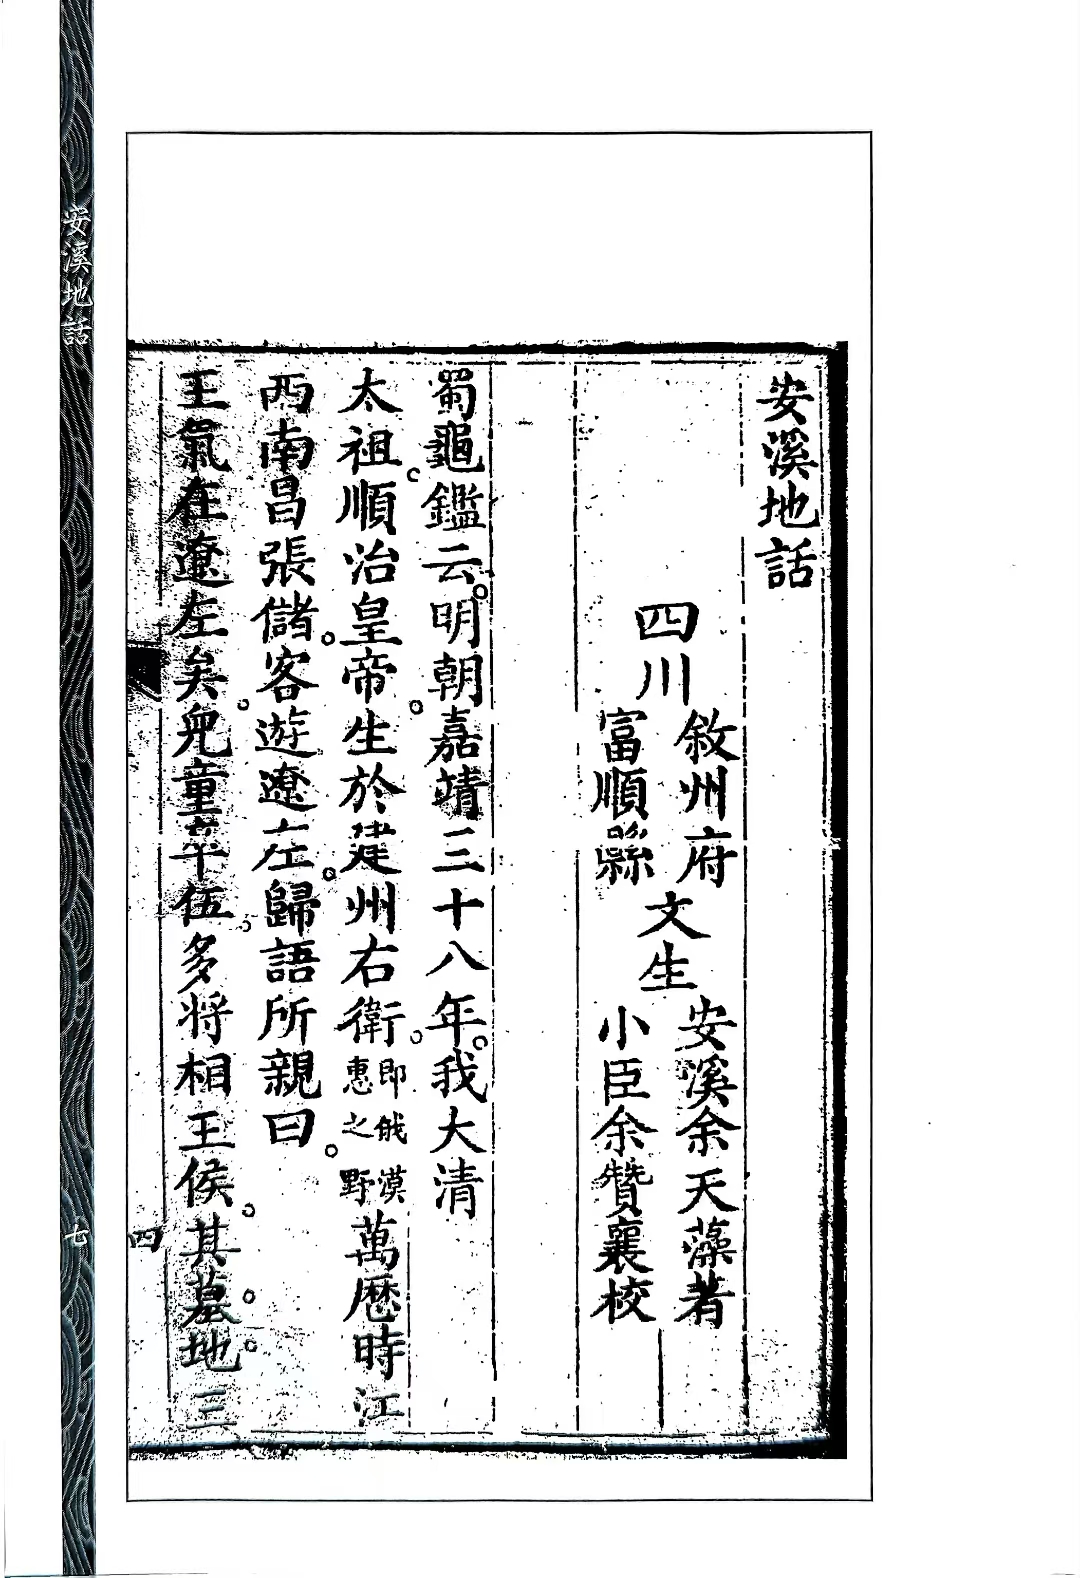 安溪地話
四川
敘州府
富順縣
文生
安溪余天藻著
小臣余贊襄校
蜀龜鑑云。明朝嘉靖三十八年。我大清
太祖。順治皇帝。生於建州右衛。即俄漠惠之野萬歷時江
西南昌張儲。客遊遼左。歸語所親曰。
王氣在遼左矣。兒童卒伍。多將相王侯。其墓。地。三
四
安溪地話
七